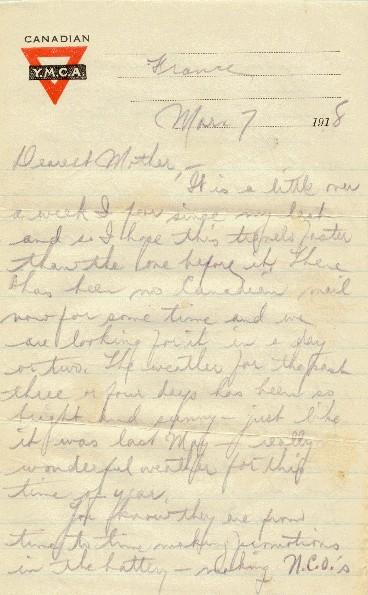 CANADIAN
Y.M.C.A.
France
Mar 7 1918
Dearest Mother,
It is a little over
a week I fear since my last
and so I hope this travels faster
than the one before it. There
has been no Canadian mail
now for some time and we
are looking for it in a day
or two. The weather for the past
three or four days has been so
bright and sunny - just like
it was last May - really
wonderful weather for this
time of year.
You know they are from
time to time making promotions
in the battery - making N.C.O.'s